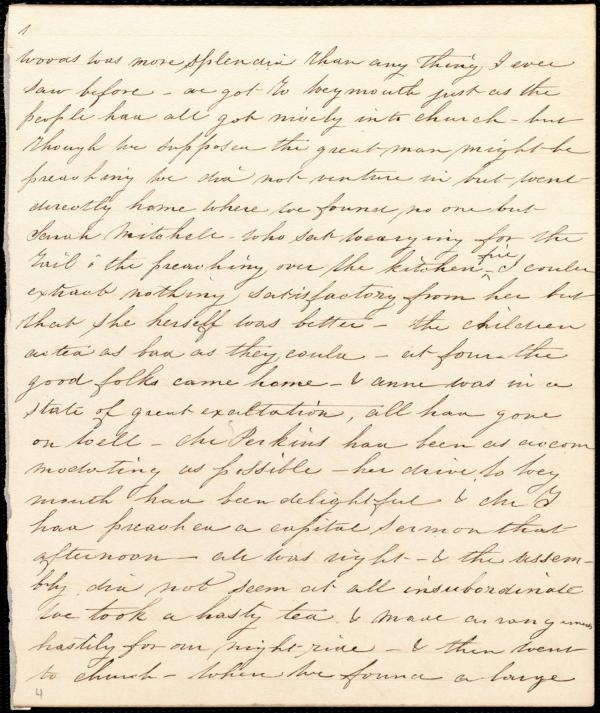 woods was more splendid than any thing I ever
saw before - we got to Weymouth just as the
people had all got nicely into church - but
though we supposed the great man might be
preaching we did not venture in but went
directly home where we found no one but
Sarah Mitchell - who sat wearying for the
Tail o' the preaching over the kitchen fire - I could
extract nothing satisfactory from her but
that she herself was better - the children
acted as bad as they could - at four the
good folks came home - & anne was in a
state of great exaltation, all had gone
on well - Mr Perkins had been as accom
modating as possible - her drive to Wey
mouth had been delightful & Mr T
had preached a capital sermon that
afternoon - all was right - & the assem-
bly did not seem at all insubordinate
We took a hasty tea & made arrangements
hastily for our night ride - & then went
to church - where we found a large
4